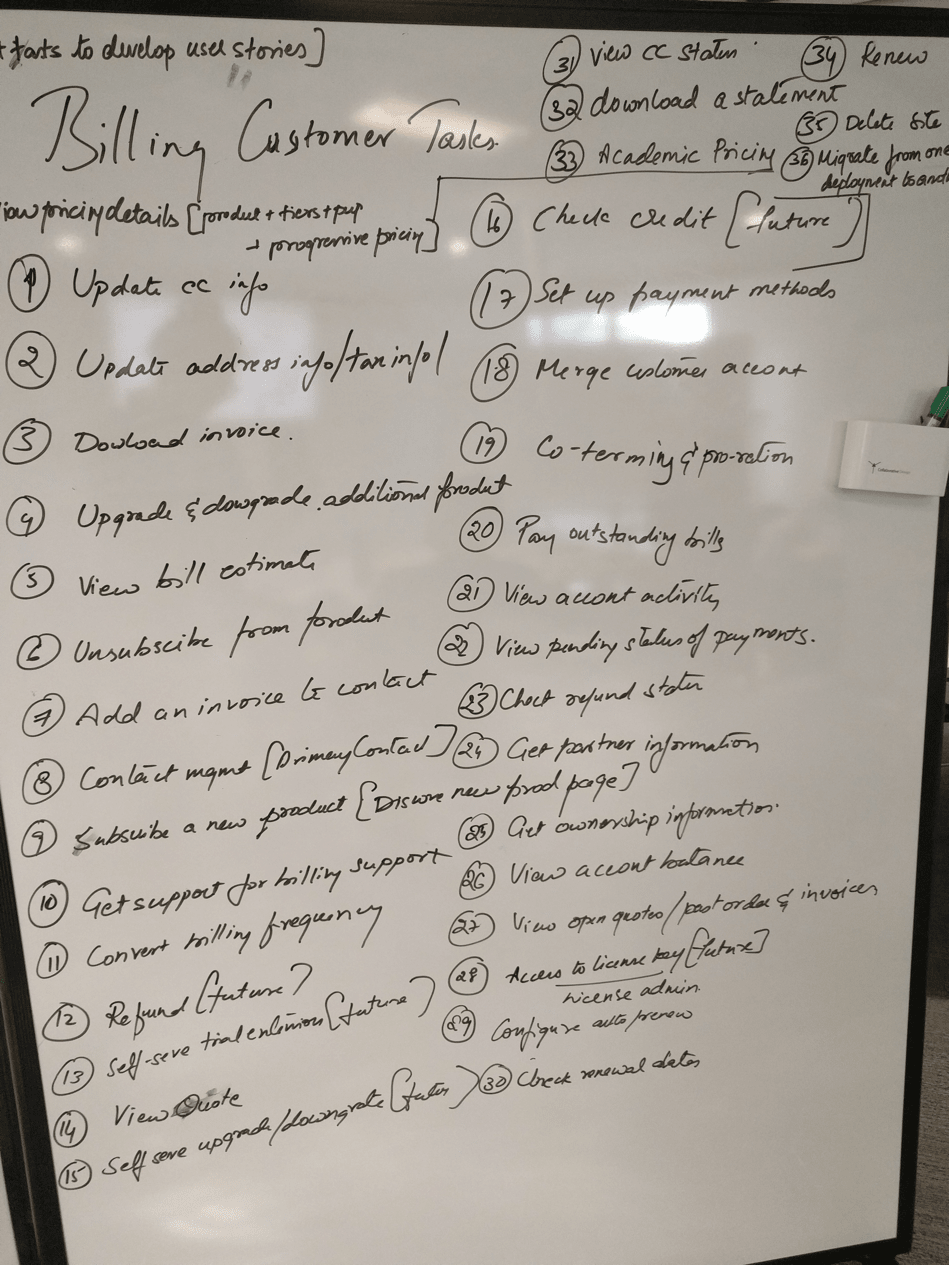 tarts to develop user stories]
Billing Customer Tasks.
iew pricing details [product + tiers + pup
→ progressive pricing]
1 Update cc info
2 Update address info/tax info/
3 Dowload invoice.
4 Upgrade & dowgrade additional product
5 View bill estimate
6 Unsubscibe from product
7 Add an invoice to contact
8 Contact mgmt [Primary Contact]
9 Subscibe a new product [Discove new prod page]
10 Get support for billing support
11 Convert billing frequency
12 Refund [future]
13 Self-seve trial extension [future]
14 View Quote
15 Self seve upgrade/downgrade [future]
16 Check credit [future]
17 Set up payment methods
18 Merge customer account
19 Co-terming & pro-ration
20 Pay outstanding bills
21 View account activity
22 View pending status of payments.
23 Check refund status
24 Get partner information
25 Get ownership information.
26 View account balance
27 View open quotes/past order & invoices
28 Access to license key [future]
License admin.
29 Configure auto/renew
30 Check renewal dates
31 View CC status
32 download a statement
33 Academic Pricing
34 Renew
35 Delete Site
36 Migrate from one
deployment to